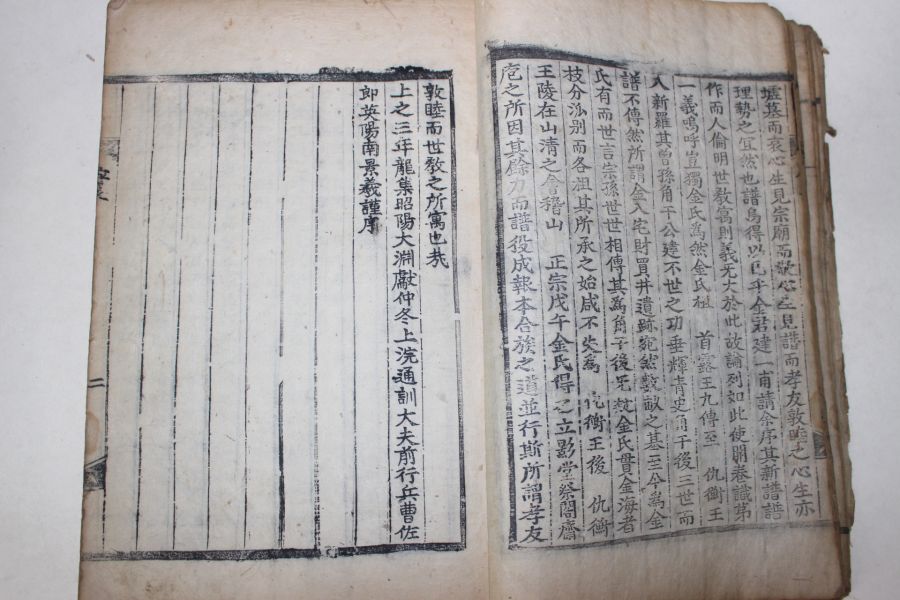 墟墓而哀心生見宗廟而敬心生見譜而孝友敦睦之心生亦
理勢之宜然也譜烏得以已乎金君建一甫請余序其新譜譜
作而人倫明世教寓則義尤大於此故論列如此使朋卷識第
一義嗚呼豈獨金氏為然金氏祖 首露王九傳至 仇衡王
入新羅其曾孫角干公建不世之功垂輝青史角干後三世而
譜不傳然所謂金入宅財買井遺跡宛然數畝之基至今為金
氏有而世言宗孫世世相傳其為角干後无 金氏貫金海者
枝分派別而各祖其所承之始咸不失為 仇衡王後 仇衡
王陵在山清之會稽山 正宗戊午金氏得之立影堂祭閣齋
庖之所因其餘力而譜役成報本合族之道並行斯所謂孝友
敦睦而世教之所寓也哉
上之三年龍集昭陽大淵獻仲冬上浣通訓大夫前行兵曹佐
郎英陽南景羲謹序
二